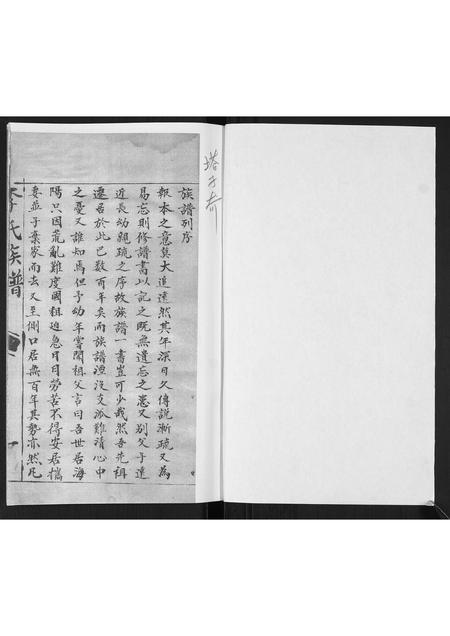 塔子夼
族譜列序
報本之意莫大追遠然其年深日久傳説漸疏又為
易忘則修譜書以記之既無遺忘之患又别父子遠
近長幼親疏之序故族譜一書豈可少哉然吾先祖
遷居於此已数百年矣而族譜湮沒支派難清心中
之憂又誰知焉但予幼年嘗聞祖父言曰吾世居海
陽只因荒亂難度國租迫急日日勞苦不得安居携
妻並子棄家而去又至側口居無百年其勢亦然凡
李氏族譜